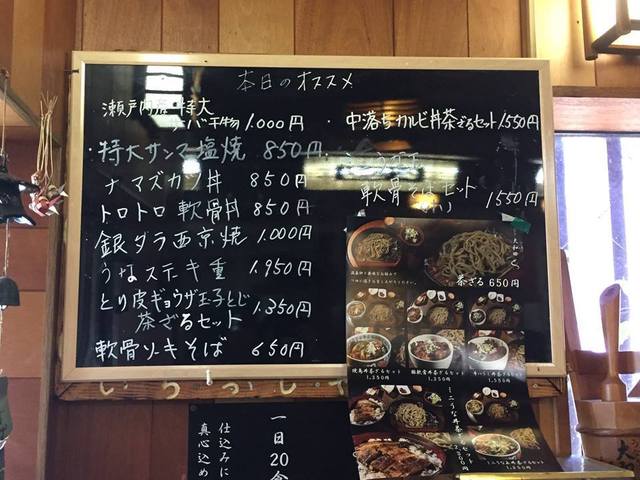 本日のオススメ
瀬戸内産 特大
サバ干物 1,000円
・特大サンマ塩焼 850円
ナマズカツ丼 850円
トロトロ軟骨丼 850円
銀ダラ西京焼 1,000円
うなステーキ重 1,950円
とり皮ギョウザ玉子とじ
茶ざるセット 1,350円
軟骨ソーキそば 650円
・中落ちカルビ丼茶ざるセット 1550円
軟骨そばセット 1550円
茶ざる 650円
焼鳥丼茶ざるセット
1,350円
豚軟骨丼茶ざるセット
1,350円
1,350円
ミニうな丼茶ざるセット
一日20食
仕込みに
真心込め